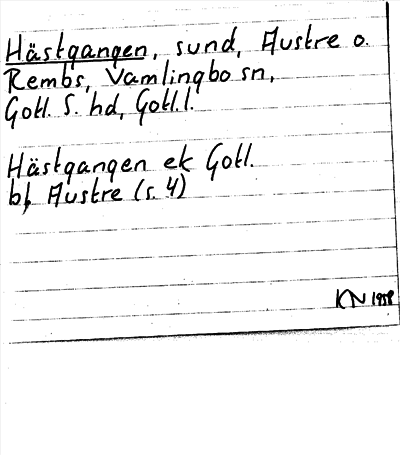 Hästgangen, sund, Austre o.
Rembs, Vamlingbo sn,
Gotl. S. hd, Gotl.l.
Hästgangen ek Gotl.
bl Austre (s. 4)
KN 1958